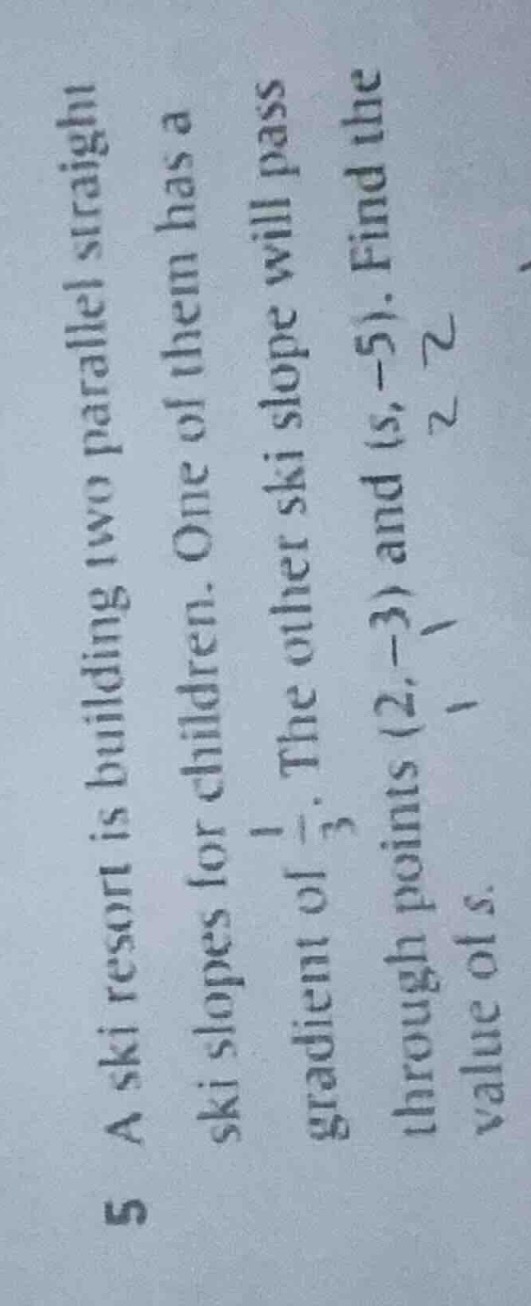 5 A ski resort is building two parallel straight
ski slopes for children. One of them has a
gradient of 1/3. The other ski slope will pass
through points (2, −3) and (s, −5). Find the
1 1 2 2
value of s.